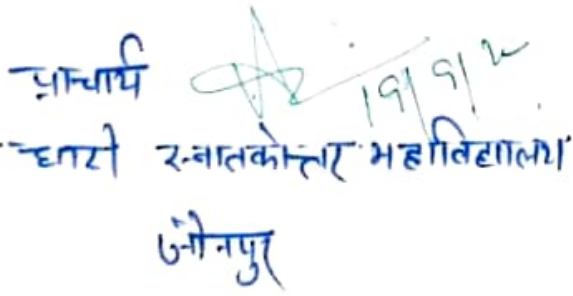 प्राचार्य
19/9/2
स्नातकोत्तर महाविद्यालय
जौनपुर